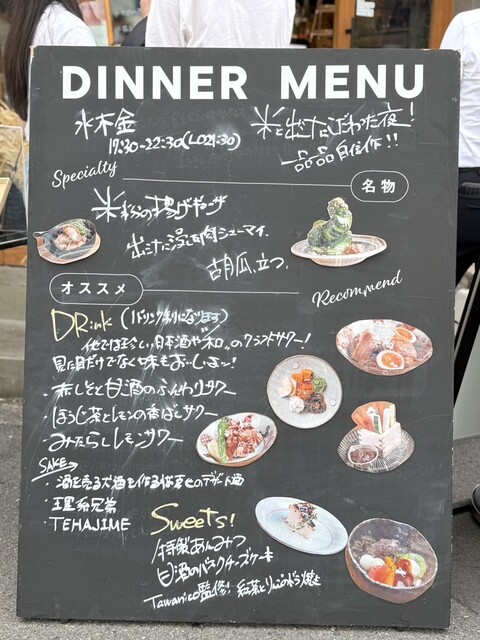 DINNER MENU
水木金
17:30~22:30(LO21:30)
米と出汁にこだわった夜!
一品一品自信作!!
Specialty
名物
米粉の揚げギョーザ
出汁に浸る肉シューマイ、
胡瓜、立つ。
オススメ
Recommend
DRink (1ドリンク制になります)
他では珍しい日本酒や
クラフトサワー!
見た目だけでなく味もおいしいよ〜!
・赤しそと甘酒のふんわりサワー
・ほうじ茶とレモンの香ばしサワー
・みたらしレモンサワー
SAKE→
・酒を売る犬酒を作る猫
デザート酒
・
・TEHAJIME
Sweets!
特製あんみつ
甘酒のバスクチーズケーキ
Tawanico監修! 紅茶とりんごのどら焼き